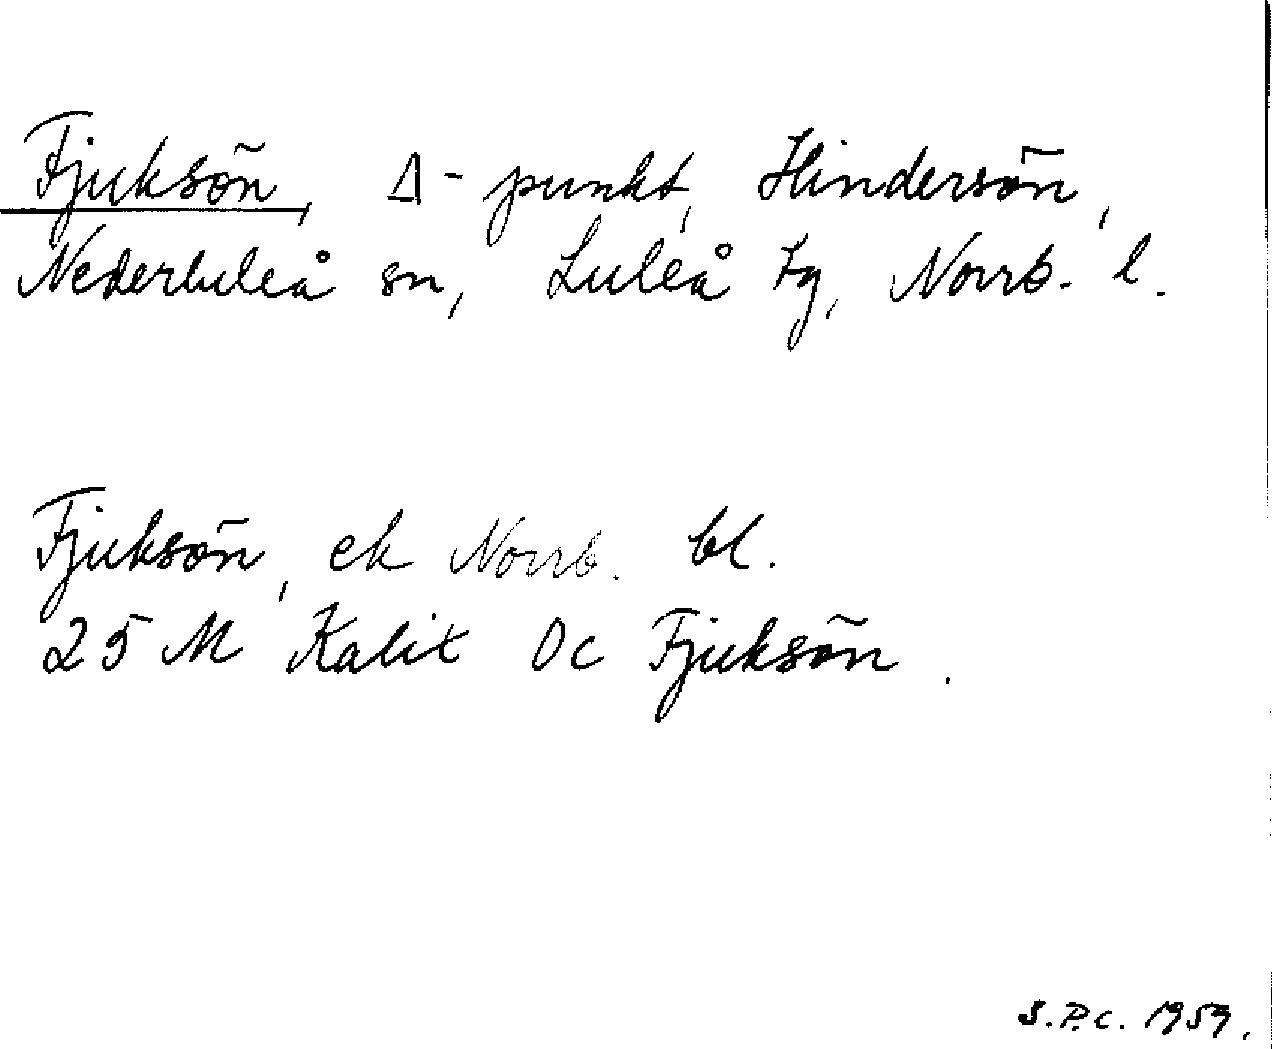 Fjuksön, Δ-punkt, Hindersön,
Nederluleå sn, Luleå tg, Norrb. l.
Fjuksön, ek Norrb. bl.
25 M Kalix 0c Fjuksön.
S.P.C. 1959.